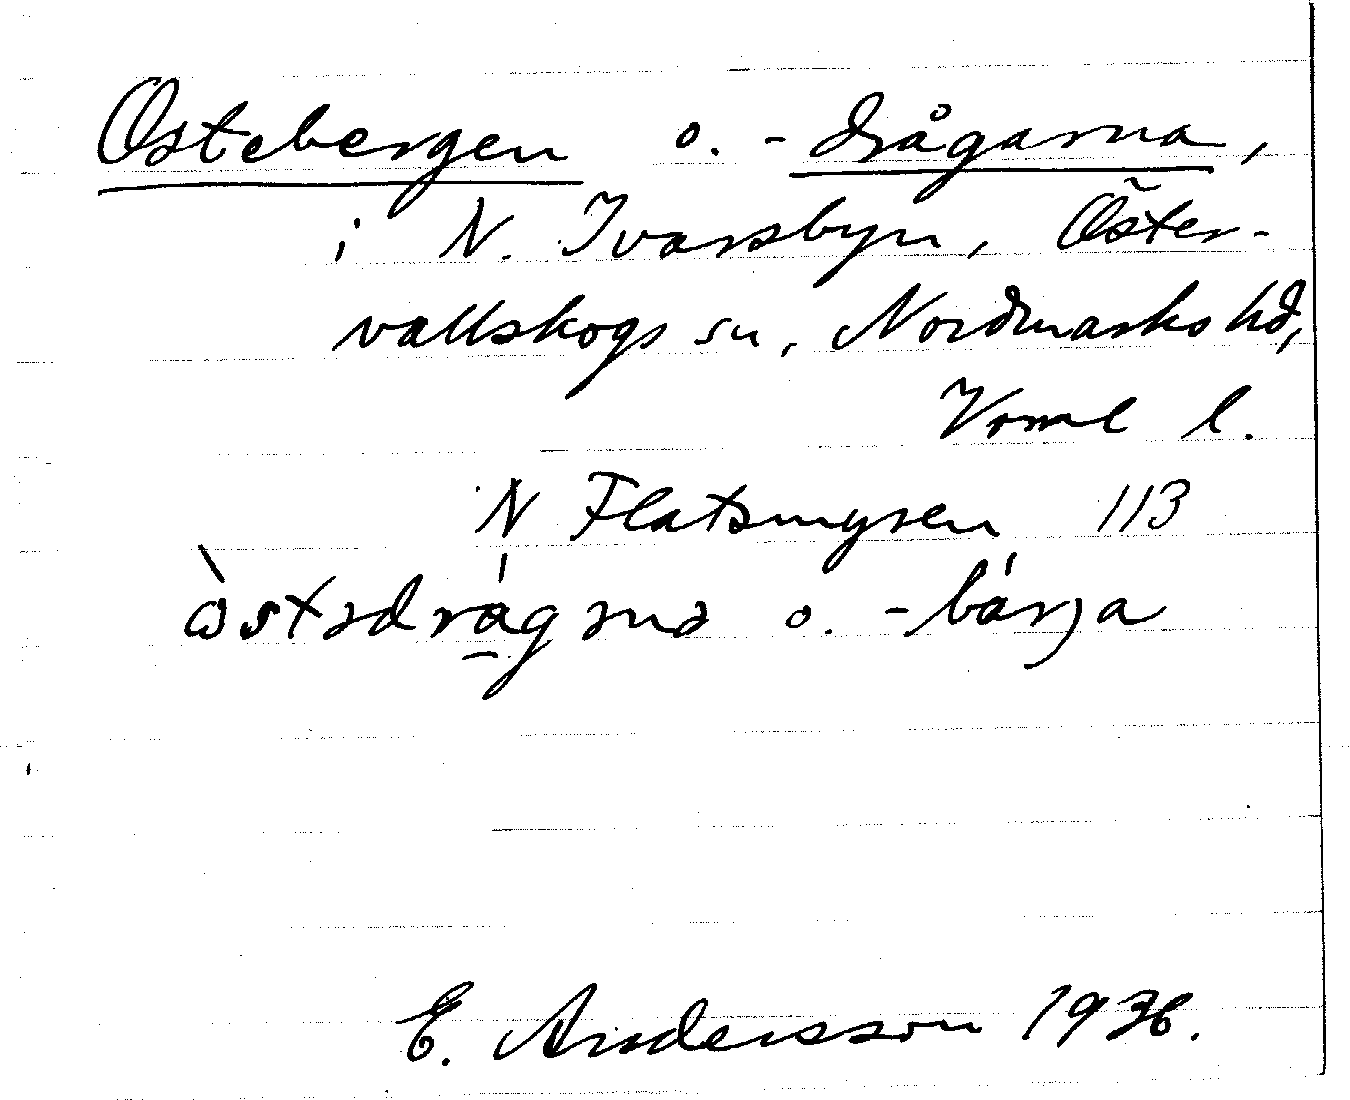 Ostebergen o. -drågarna,
i N. Ivarsbyn, Öster-
vallskogs sn, Nordmarks hd,
Vrml l.
N Flatsmyren 113
òstədrágəna o. -bárja
E. Andersson 1936.